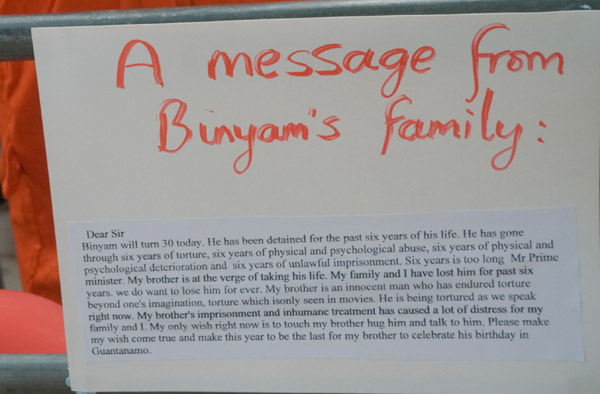 A message from
Binyam's family:
Dear Sir
Binyam will turn 30 today. He has been detained for the past six years of his life. He has gone
through six years of torture, six years of physical and psychological abuse, six years of physical and
psychological deterioration and six years of unlawful imprisonment. Six years is too long Mr Prime
minister. My brother is at the verge of taking his life. My family and I have lost him for past six
years. we do want to lose him for ever. My brother is an innocent man who has endured torture
beyond one's imagination, torture which isonly seen in movies. He is being tortured as we speak
right now. My brother's imprisonment and inhumane treatment has caused a lot of distress for my
family and I. My only wish right now is to touch my brother hug him and talk to him. Please make
my wish come true and make this year to be the last for my brother to celebrate his birthday in
Guantanamo.